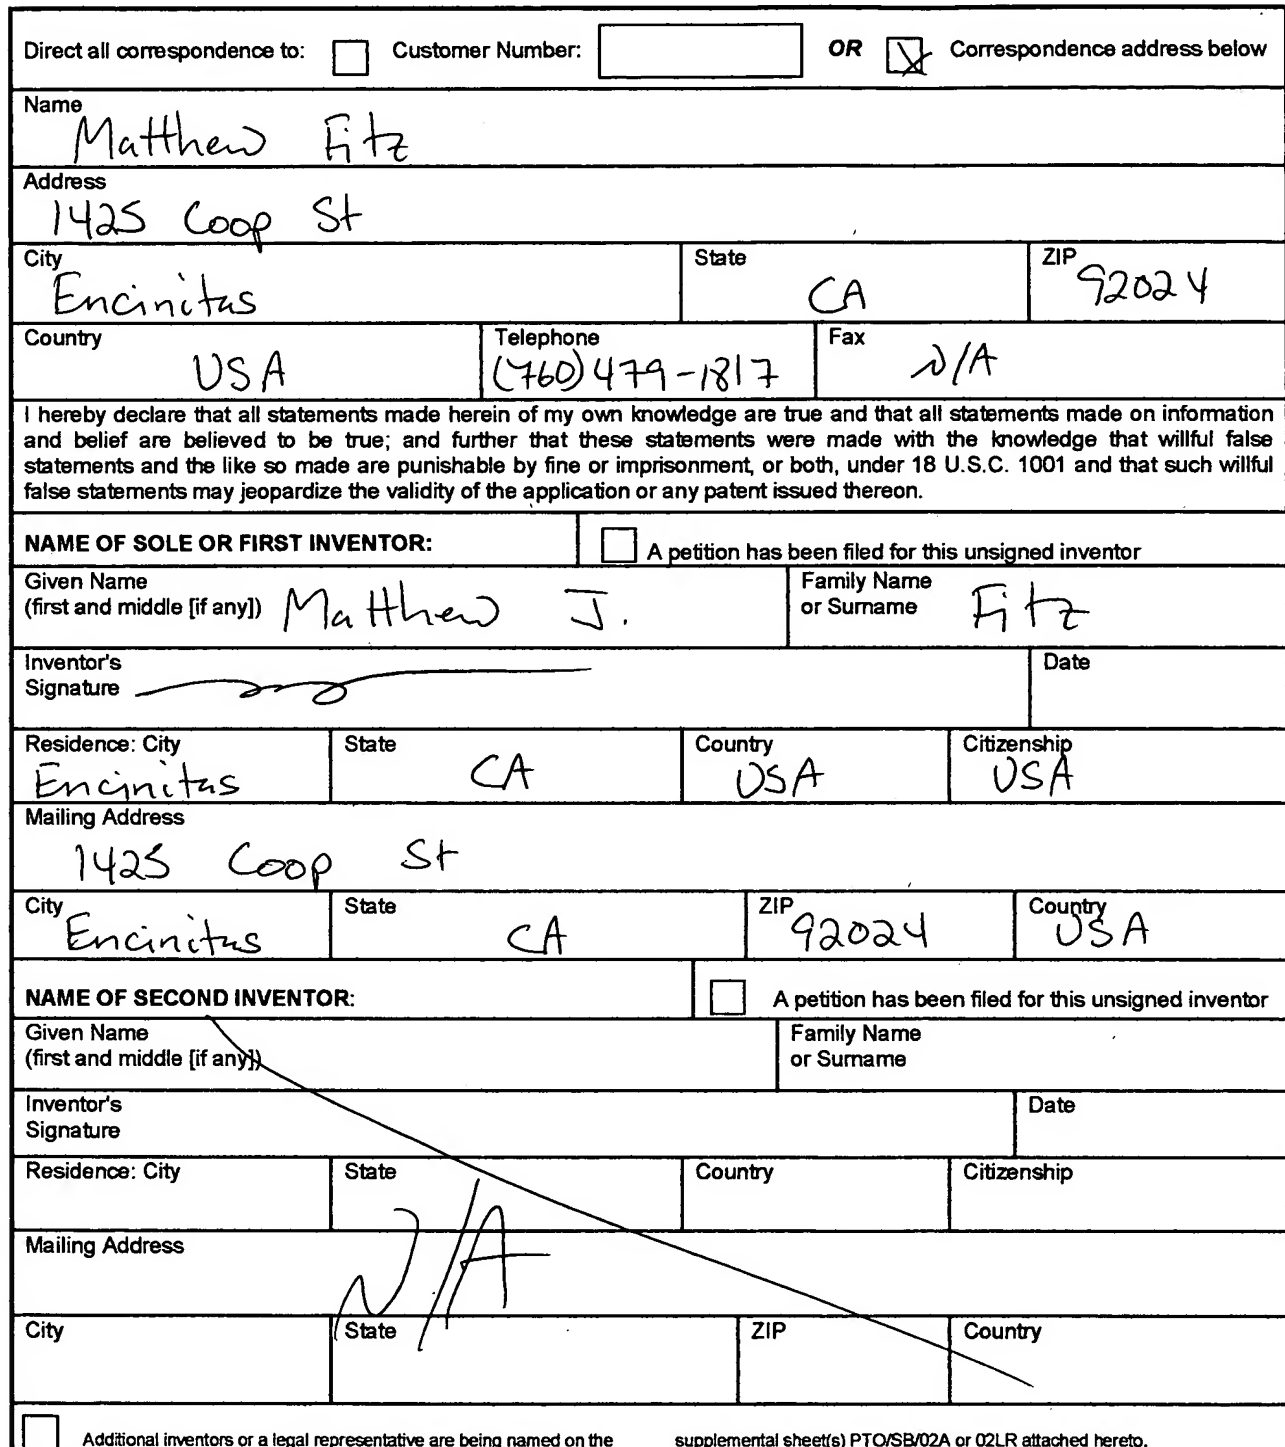 Direct all correspondence to: Customer Number: OR Correspondence address below
Name
Matthew Fitz
Address
1425 Coop St
City State ZIP
Encinitas CA 92024
Country Telephone Fax
USA (760) 479-1817 N/A
I hereby declare that all statements made herein of my own knowledge are true and that all statements made on information
and belief are believed to be true; and further that these statements were made with the knowledge that willful false
statements and the like so made are punishable by fine or imprisonment, or both, under 18 U.S.C. 1001 and that such willful
false statements may jeopardize the validity of the application or any patent issued thereon.
NAME OF SOLE OR FIRST INVENTOR: A petition has been filed for this unsigned inventor
Given Name Family Name
(first and middle [if any]) Matthew J. or Surname Fitz
Inventor's Date
Signature
Residence: City State Country Citizenship
Encinitas CA USA USA
Mailing Address
1425 Coop St
City State ZIP Country
Encinitas CA 92024 USA
NAME OF SECOND INVENTOR: A petition has been filed for this unsigned inventor
Given Name Family Name
(first and middle [if any]) or Surname
Inventor's Date
Signature
Residence: City State Country Citizenship
Mailing Address
N/A
City State ZIP Country
Additional inventors or a legal representative are being named on the supplemental sheet(s) PTO/SB/02A or 02LR attached hereto.